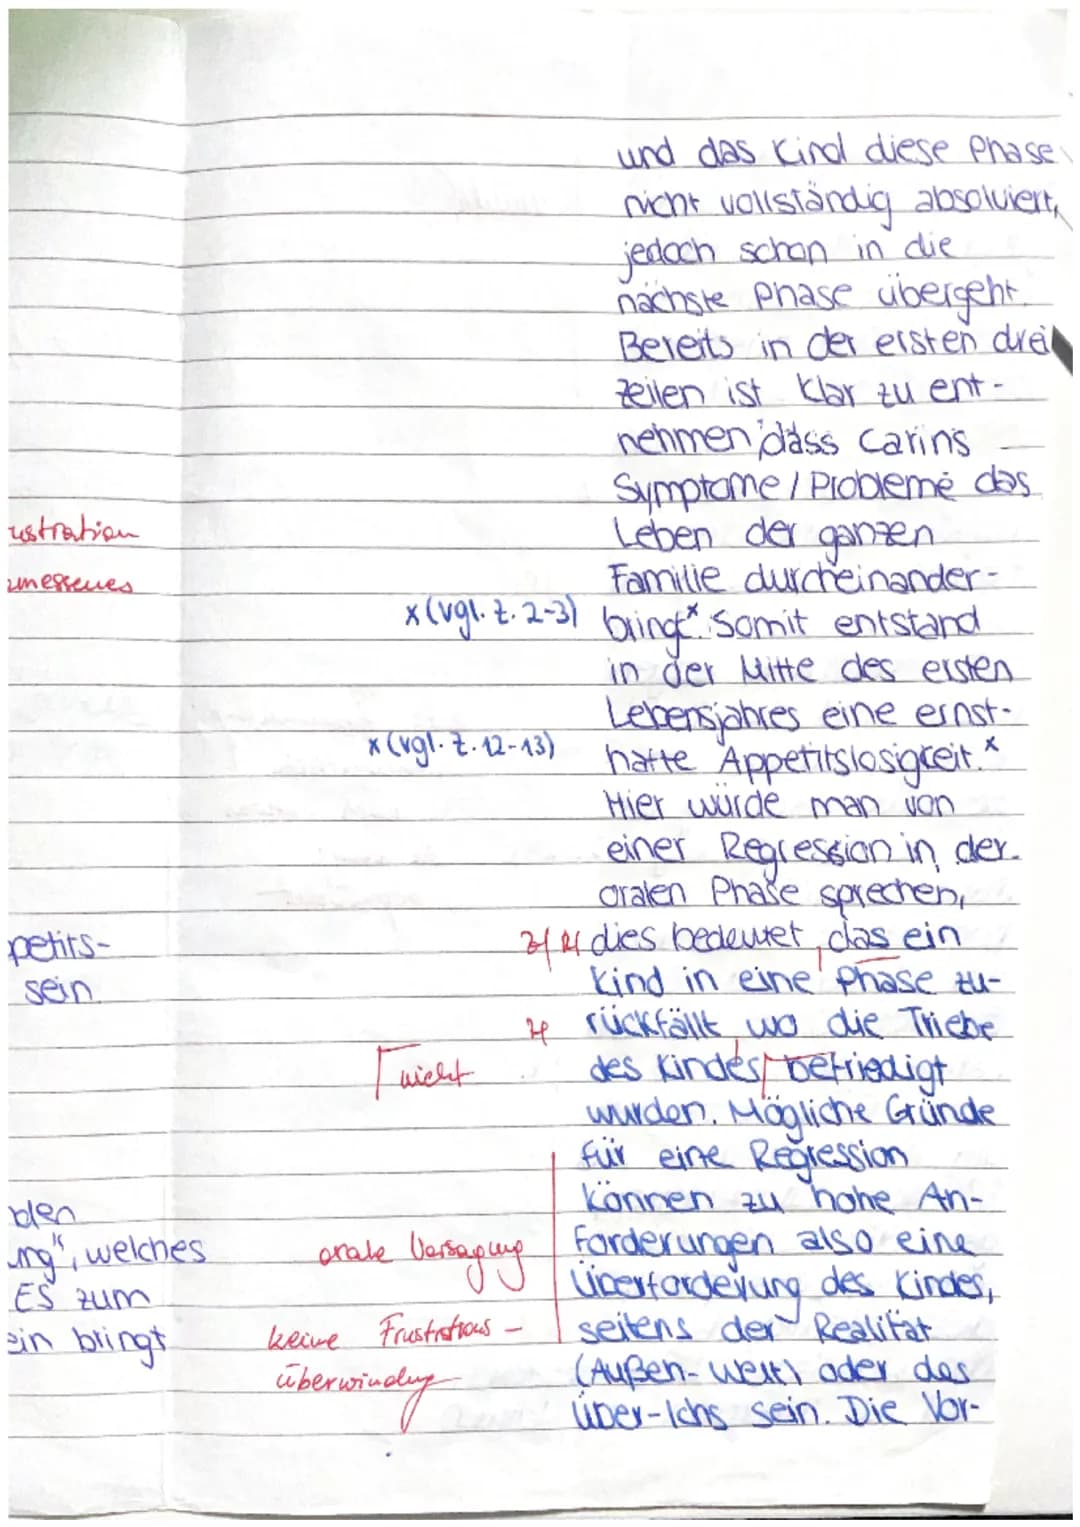 und das Kind diese Phase
nicht vollständig absolviert,
jedoch schon in die
nächste Phase übergeht.
Bereits in der ersten drei
Zeilen ist klar zu ent-
nehmen, dass Carins
Symptome / Probleme das
ustration
Leben der ganzen
messenes
Familie durcheinander-
x (vgl. Z. 2-3)
bringt x. Somit entstand
in der Mitte des ersten
Lebensjahres eine ernst-
x (vgl. Z. 12-13)
hafte Appetitslosigkeit. x
Hier würde man von
einer Regression in der
oralen Phase sprechen,
petits-
dies bedeutet, das ein
sein
Kind in eine Phase zu-
rückfällt wo die Triebe
nicht
des Kindes befriedigt
wurden. Mögliche Gründe
für eine Regression
den
können zu hohe An-
ung", welches
orale Versagung
forderungen also eine
ES zum
Überforderung des Kindes,
ein bringt
keine Frustrations-
seitens der Realität
überwindung
(Außen-Welt) oder des
Über-Ichs sein. Die Vor-